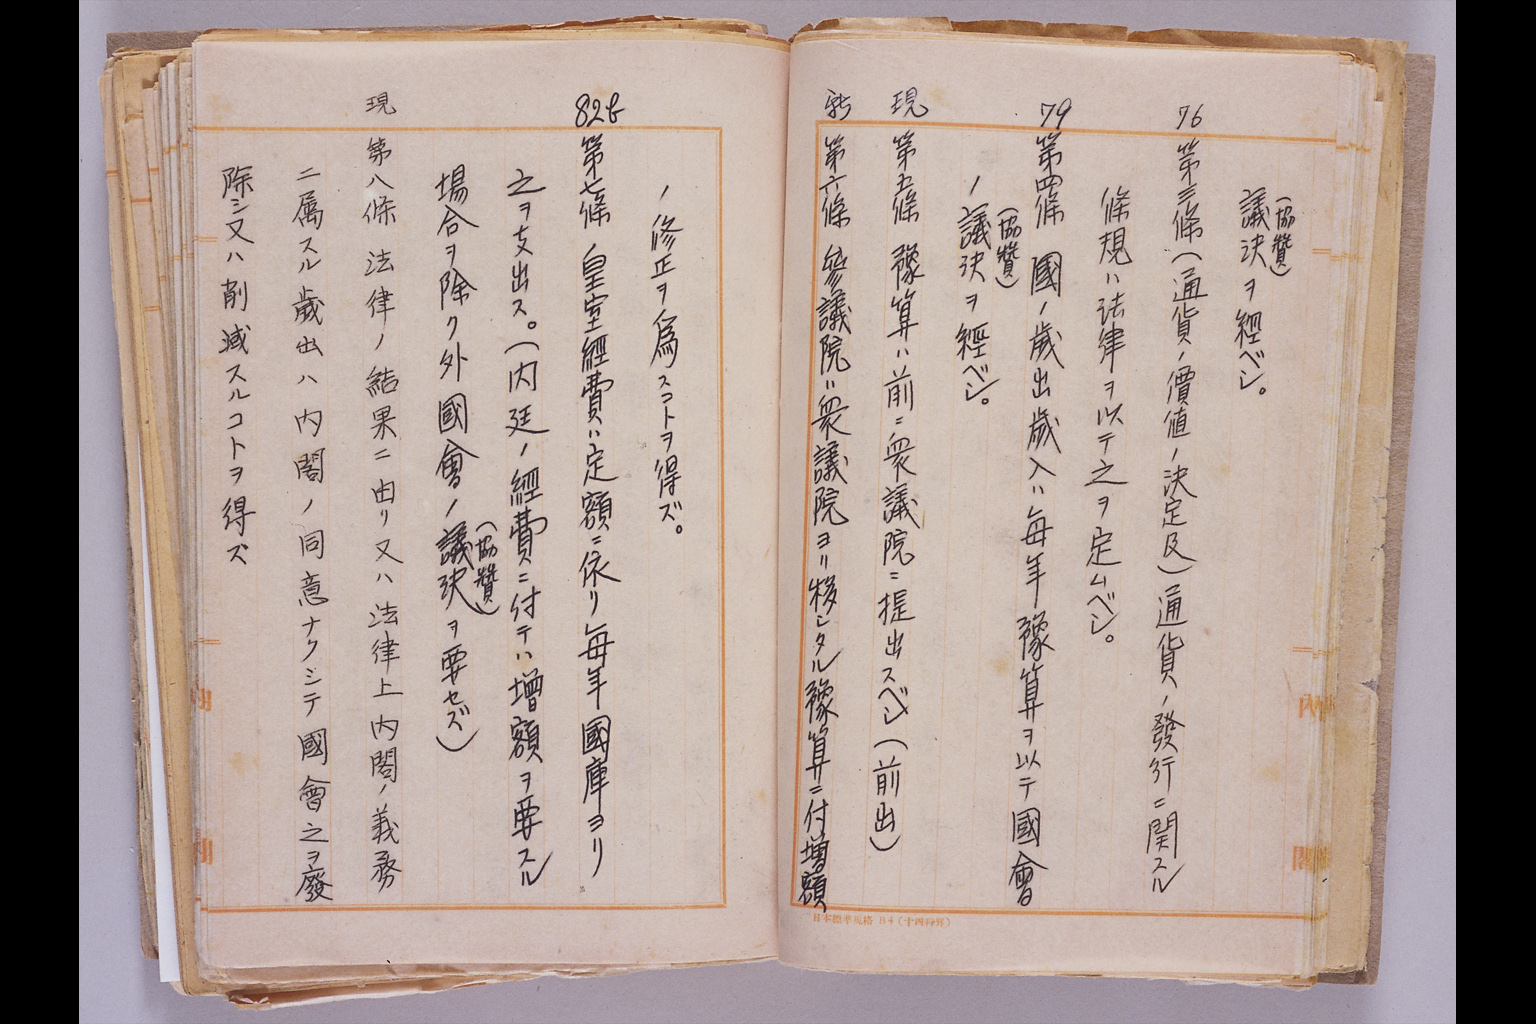 (協贊)
議決ヲ經ベシ。
76
第三條(通貨ノ價値ノ決定及)通貨ノ發行ニ関スル
條規ハ法律ヲ以テ之ヲ定ムベシ。
79
第四條 國ノ歲出歲入ハ每年豫算ヲ以テ國會
(協贊)
ノ議決ヲ經ベシ。
現
第五條 豫算ハ前ニ衆議院ニ提出スベシ(前出)
新
第六條 參議院ハ衆議院ヨリ移シタル豫算ニ付增額
日本標準規格B4(十四行界)
ノ修正ヲ爲スコトヲ得ズ。
82b
第七條 皇室經費ハ定額ニ依リ每年國庫ヨリ
之ヲ支出ス。(内廷ノ經費ニ付テハ增額ヲ要スル
場合ヲ除ク外國會ノ議決ヲ要セズ)
(協贊)
現
第八條 法律ノ結果ニ由リ又ハ法律上内閣ノ義務
ニ属スル歲出ハ内閣ノ同意ナクシテ國會之ヲ廢
除シ又ハ削減スルコトヲ得ズ